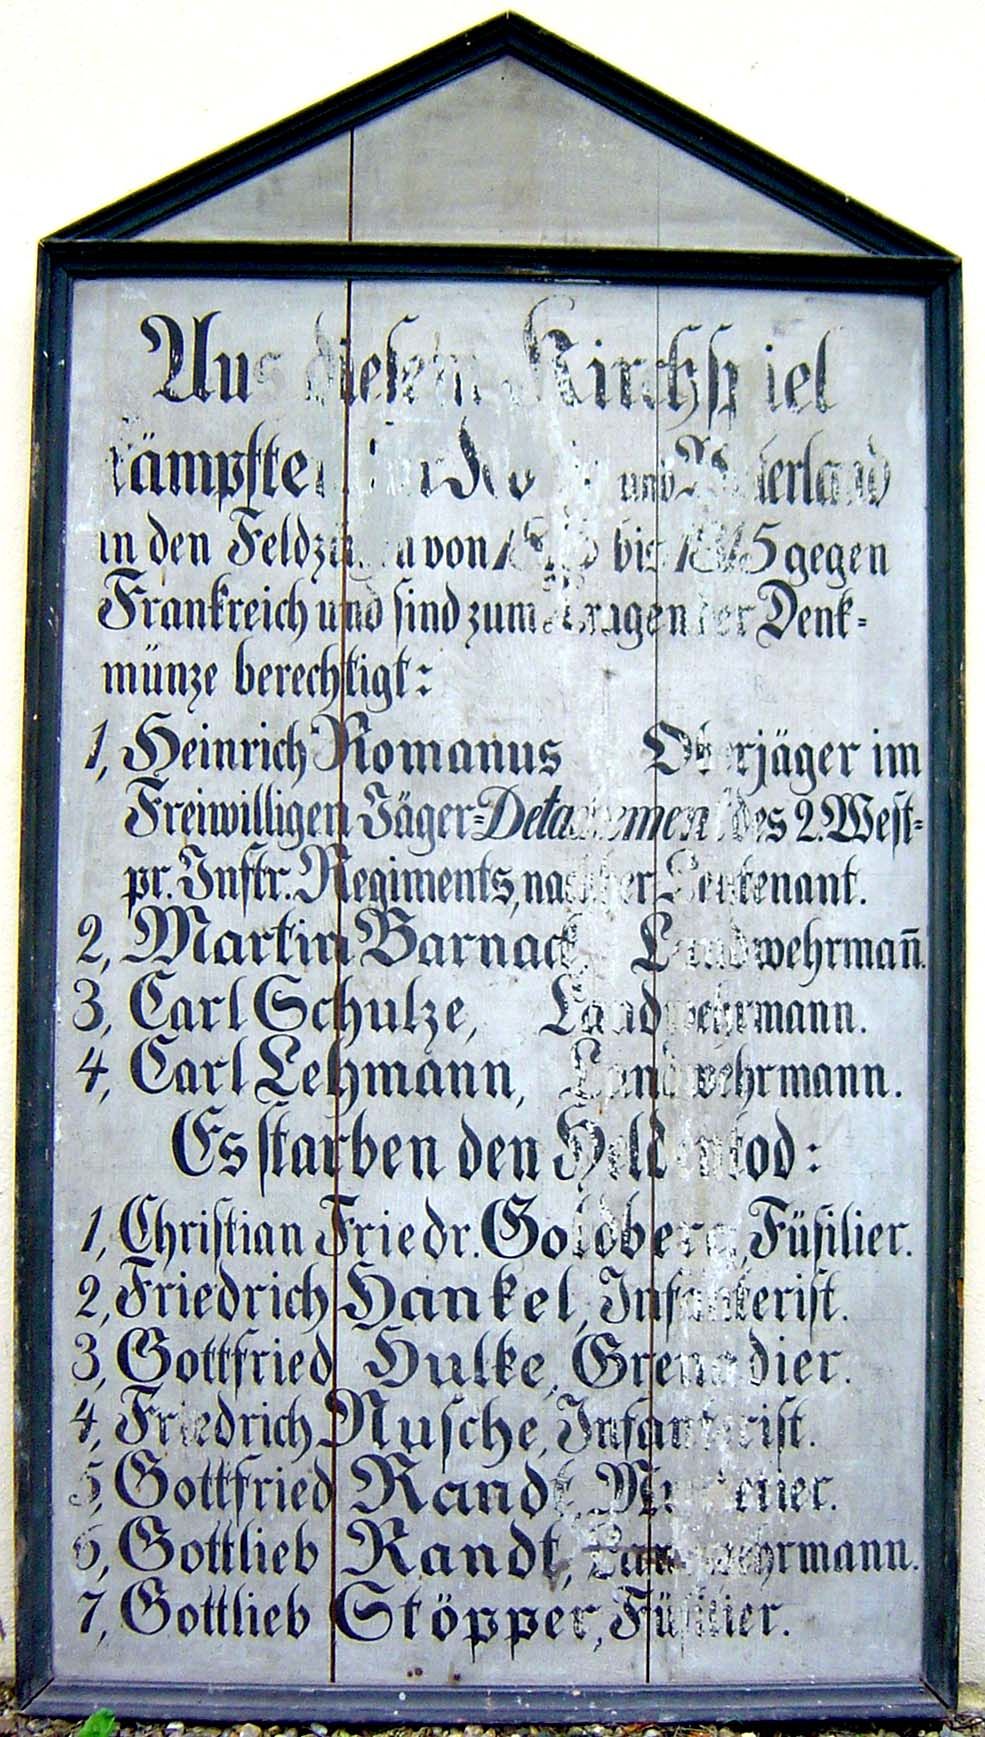 Aus diesem Kirchspiel
kämpften für König und Vaterland
in den Feldzügen von 1813 bis 1815 gegen
Frankreich und sind zum Tragen der Denk-
münze berechtigt:
1, Heinrich Romanus Oberjäger im
Freiwilligen Jäger-Detachement des 2. West-
pr. Inftr. Regiments, nachher Leutenant.
2, Martin Barnack Landwehrman̅.
3, Carl Schulze, Landwehrmann.
4, Carl Lehmann, Landwehrmann.
Es starben den Heldentod:
1, Christian Friedr. Goldberg, Füsilier.
2, Friedrich Hankel, Infanterist.
3, Gottfried Hulke, Grenadier.
4, Friedrich Nusche, Infanterist.
5, Gottfried Randt, Musketier.
6, Gottlieb Randt, Landwehrmann.
7, Gottlieb Stöpper, Füsilier.